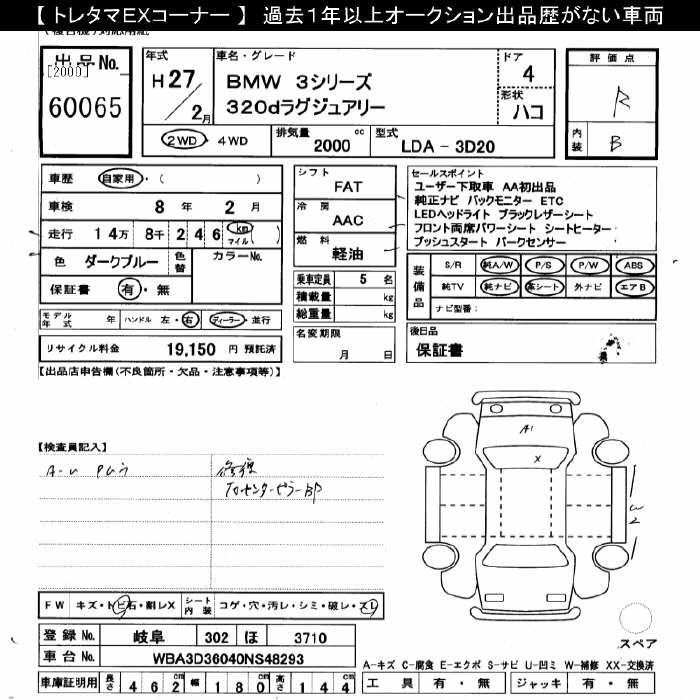 【 トレタマEXコーナー 】 過去１年以上オークション出品歴がない車両
出品No.
[2000]
60065
年式
H27/2月
車名・グレード
BMW 3シリーズ
320dラグジュアリー
ドア
4
形状
ハコ
2WD・4WD
排気量 2000 cc
型式 LDA － 3D20
評価点
R
内装
B
車歴 自家用・( )
車検 8年 2月
走行 14万 8千 246 km マイル
色 ダークブルー 色替 カラーNo.
保証書 有・無
モデル年式 年 ハンドル 左・右 ディーラー・並行
リサイクル料金 19,150 円 預託済
シフト
FAT
冷房
AAC
燃料
軽油
乗車定員 5 名
積載量 kg
総重量 kg
名変期限
月 日
セールスポイント
ユーザー下取車 AA初出品
純正ナビ バックモニター ETC
LEDヘッドライト ブラックレザーシート
フロント両席パワーシート シートヒーター
プッシュスタート パークセンサー
装備品
S/R 純A/W P/S P/W ABS
純TV 純ナビ 革シート 外ナビ エアB
ナビ型番:
後日品
保証書
【出品店申告欄(不良箇所・欠品・注意事項等)】
【検査員記入】
修復
A1
X
W2
FW キズ・トビ石・割レX シート内装 コゲ・穴・汚レ・シミ・破レ・スレ
登録No. 岐阜 302 ほ 3710
車台No. WBA3D36040NS48293
車庫証明用 長さ 462cm 幅 180cm 高さ 144cm
スペア
A-キズ C-腐食 E-エクボ S-サビ U-凹ミ W-補修 XX-交換済
工具 有・無 ジャッキ 有・無